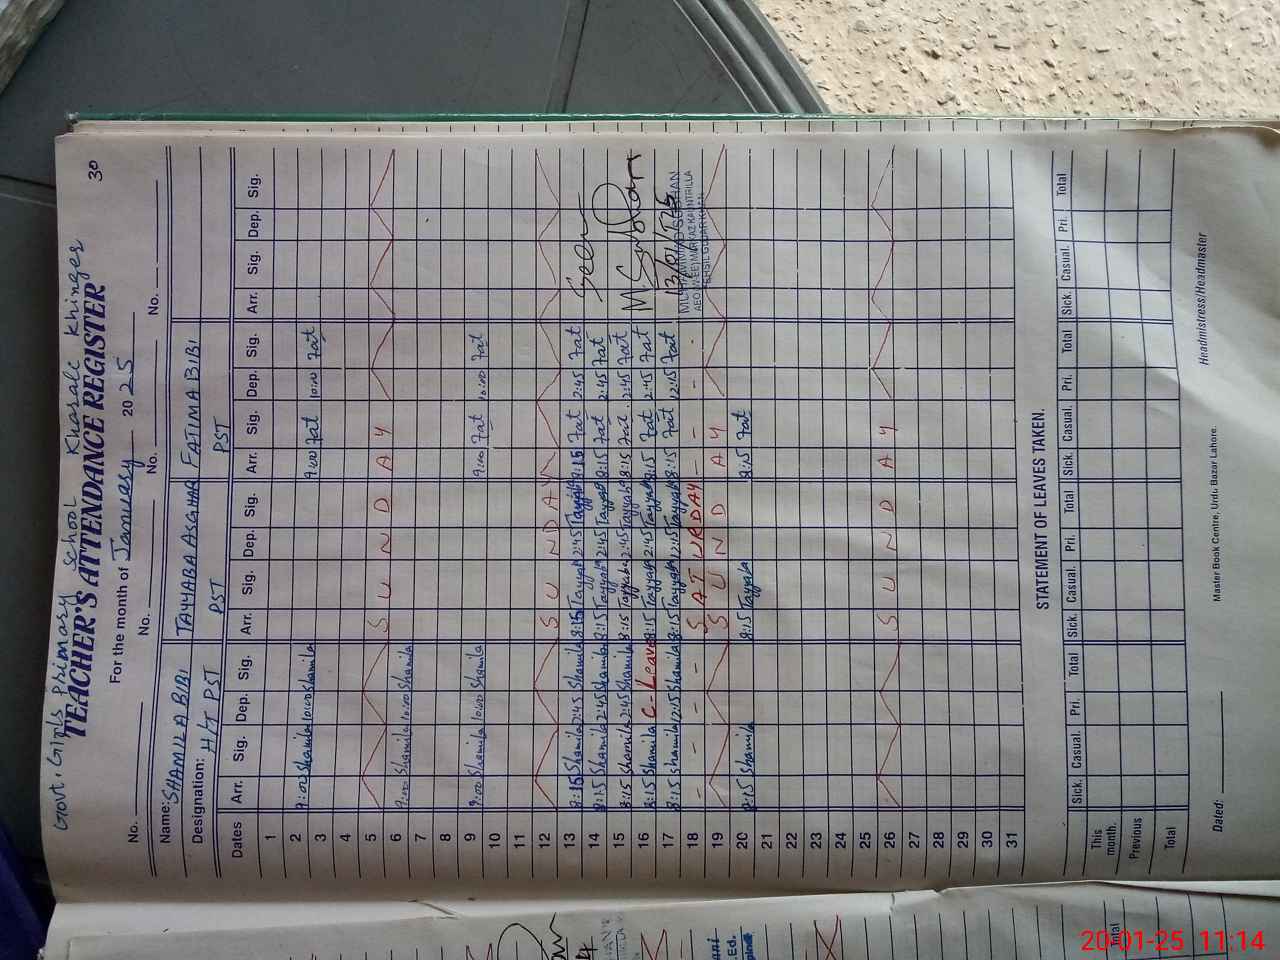 Govt. Girls Primary School Khasale Khinger
TEACHER'S ATTENDANCE REGISTER 30
For the month of January 2025
No. No. No. No.
Name: SHAMILA BIBI TAYYABA ASGHAR FATIMA BIBI
Designation: H/T PST PST PST
Dates Arr. Sig. Dep. Sig. Arr. Sig. Dep. Sig. Arr. Sig. Dep. Sig. Arr. Sig. Dep. Sig.
1
2 9:00 Shamila 10:00 Shamila 9:00 Fat 10:00 Fat
3
4
5 S U N D A Y
6 9:00 Shamila 10:00 Shamila
7
8
9 9:00 Shamila 10:00 Shamila 9:00 Fat 10:00 Fat
10
11
12 S U N D A Y
13 8:15 Shamila 2:45 Shamila 8:15 Tayyaba 2:45 Tayyaba 8:15 Fat 2:45 Fat Seen
14 8:15 Shamila 2:45 Shamila 8:15 Tayyaba 2:45 Tayyaba 8:15 Fat 2:45 Fat
15 8:15 Shamila 2:45 Shamila 8:15 Tayyaba 2:45 Tayyaba 8:15 Fat 2:45 Fat
16 8:15 Shamila C-Leave 8:15 Tayyaba 2:45 Tayyaba 8:15 Fat 2:45 Fat
17 8:15 Shamila 12:15 Shamila 8:15 Tayyaba 12:15 Tayyaba 8:15 Fat 12:15 Fat 13/01/25
18 - - - - S A T U R D A Y - - - -
MUHAMMAD
AEO(W-EE) MARKAZ
TEHSIL GUJAR KHAN
19 S U N D A Y
20 8:15 Shamila 8:15 Tayyaba 8:15 Fat
21
22
23
24
25
26 S U N D A Y
27
28
29
30
31
STATEMENT OF LEAVES TAKEN.
Sick. Casual. Pri. Total Sick. Casual. Pri. Total Sick. Casual. Pri. Total Sick. Casual. Pri. Total
This month.
Previous
Total
Dated: Master Book Centre, Urdu Bazar Lahore. Headmistress/Headmaster
Total
Ed.
20-01-25 11:14